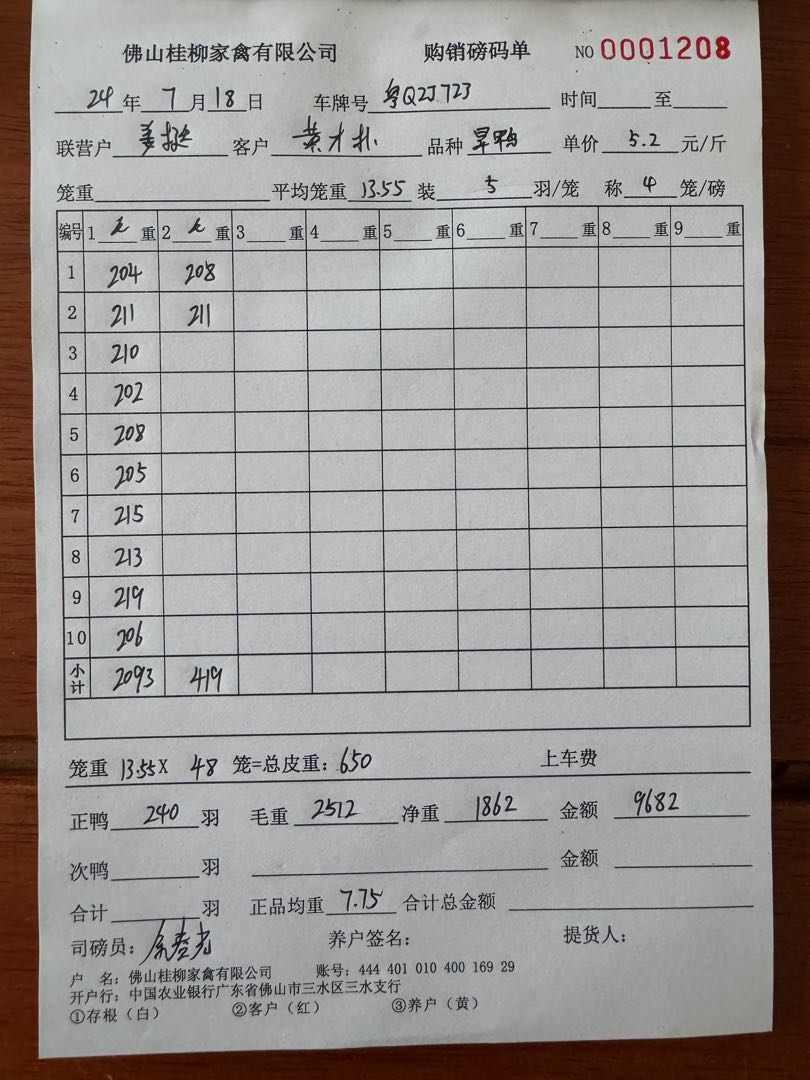 佛山桂柳家禽有限公司 购销磅码单 NO 0001208
24 年 7 月 18 日 车牌号 粤Q2J723 时间 至
联营户 姜 客户 黄才 品种 旱鸭 单价 5.2 元/斤
笼重 平均笼重 13.55 装 5 羽/笼 称 4 笼/磅
编号 1 毛 重 2 毛 重 3 重 4 重 5 重 6 重 7 重 8 重 9 重
1 204 208
2 211 211
3 210
4 202
5 208
6 205
7 215
8 213
9 219
10 206
小计 2093 419
笼重 13.55X 48 笼=总皮重：650 上车费
正鸭 240 羽 毛重 2512 净重 1862 金额 9682
次鸭 羽 金额
合计 羽 正品均重 7.75 合计总金额
司磅员： 养户签名： 提货人：
户 名：佛山桂柳家禽有限公司 账号：444 401 010 400 169 29
开户行：中国农业银行广东省佛山市三水区三水支行
①存根（白） ②客户（红） ③养户（黄）